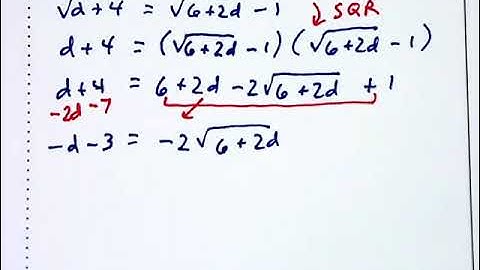 √d+4 = √6+2d -1
↓ SQR
d+4 = (√6+2d -1)(√6+2d -1)
d+4 = 6+2d -2√6+2d +1
-2d -7
-d-3 = -2√6+2d